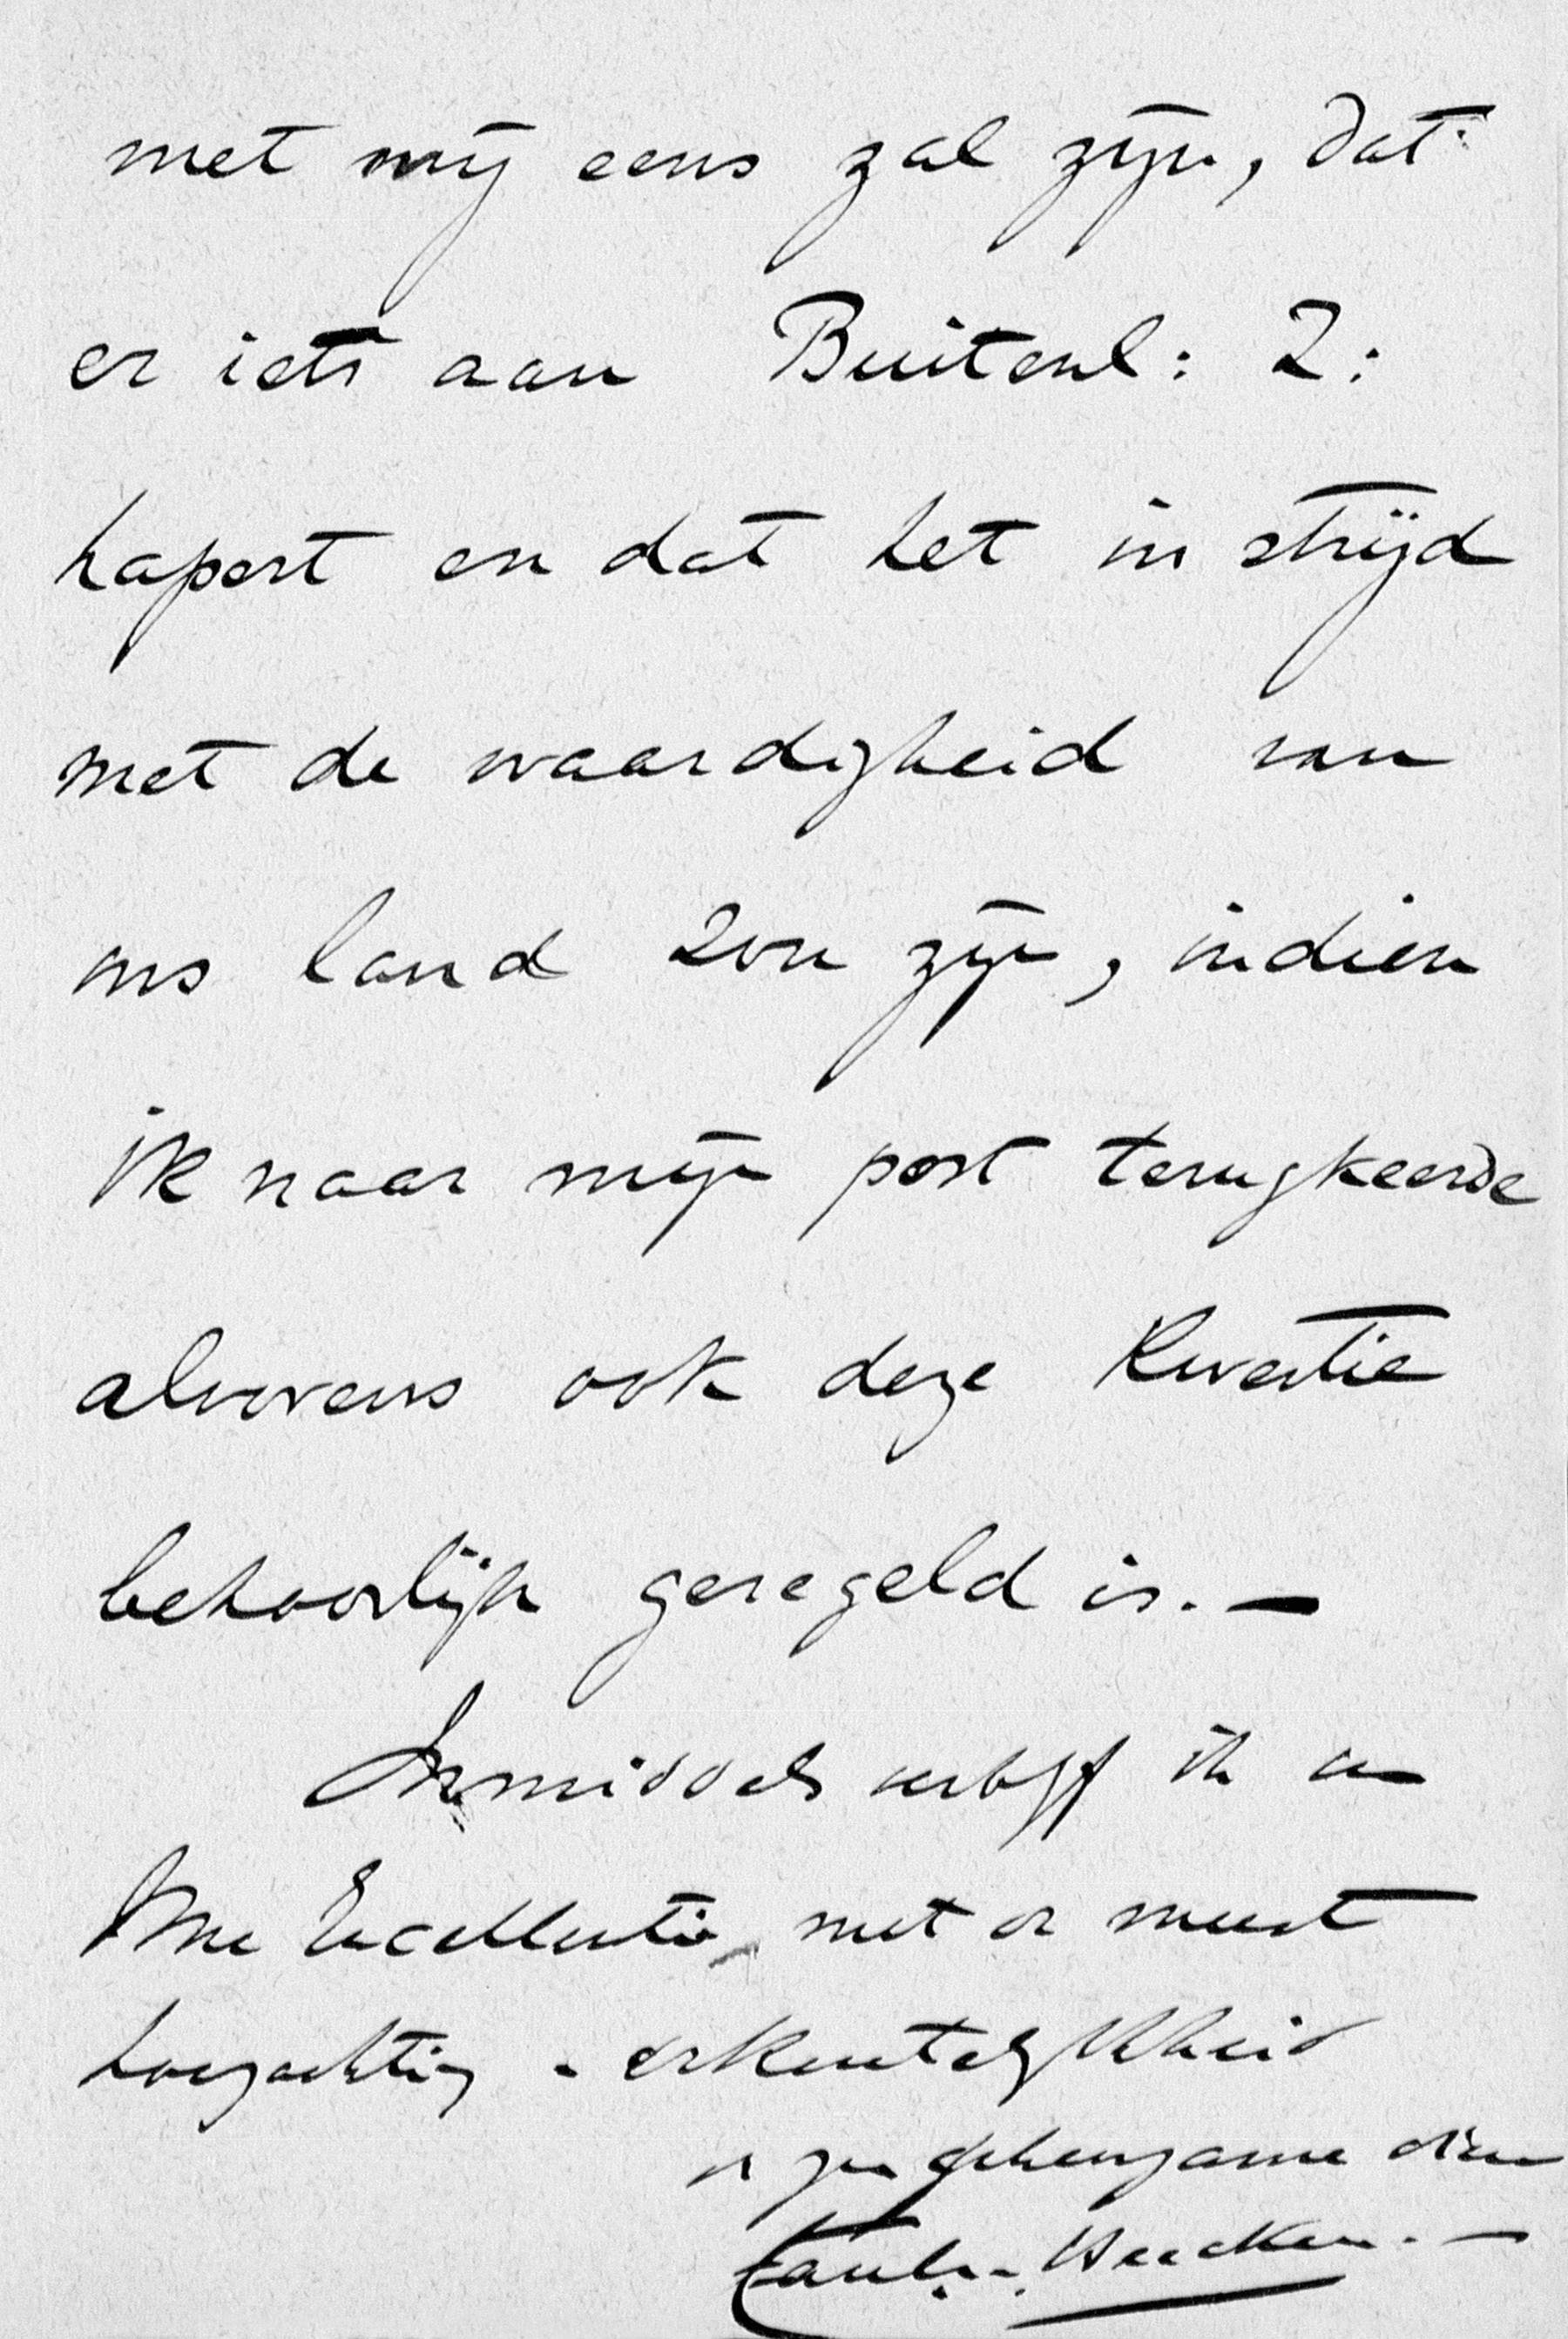 met mij eens zal zijn, dat
er iets aan Buitenl: Z:
hapert en dat het in strijd
met de waardigheid van
ons land zou zijn, indien
ik naar mijn post terugkeerde
alvorens ook deze kwestie
behoorlijk geregeld is. —
Inmiddels verblijf ik van
Uwe Excellentie, met de meest
hoogachting - erkentelijkheid
gehoorzame